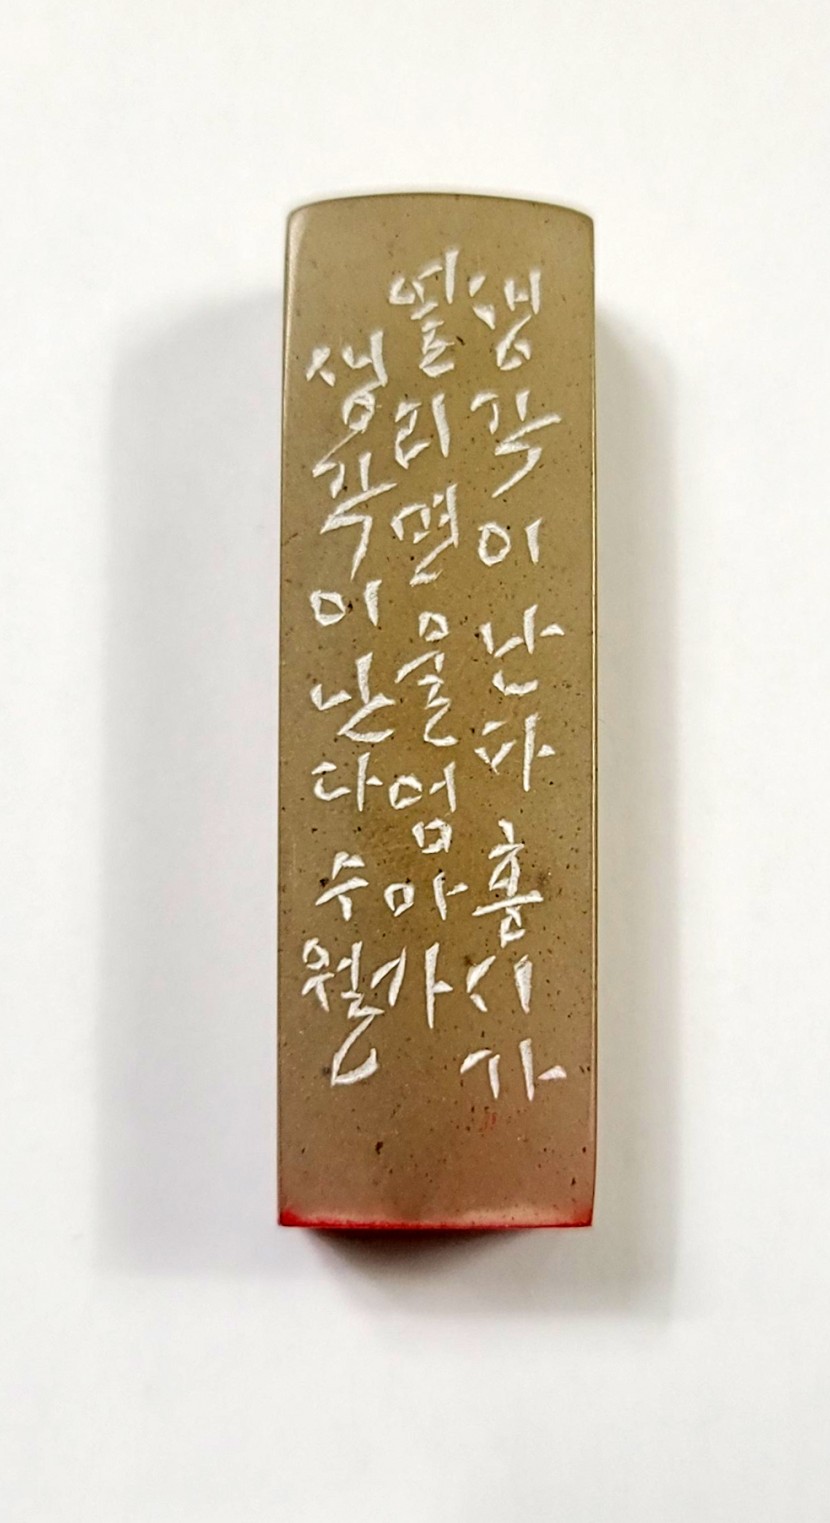 생각이난다홍시가
열리면울엄마가
생각이난다수월